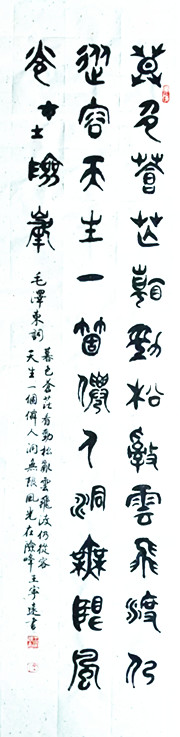 莫色蒼茫看勁松亂雲飛渡仍
從容天生一箇僊人洞無限風
光在險峯
毛澤東詞
暮色蒼茫看勁松亂雲飛渡仍從容
天生一個僊人洞無限風光在險峰王